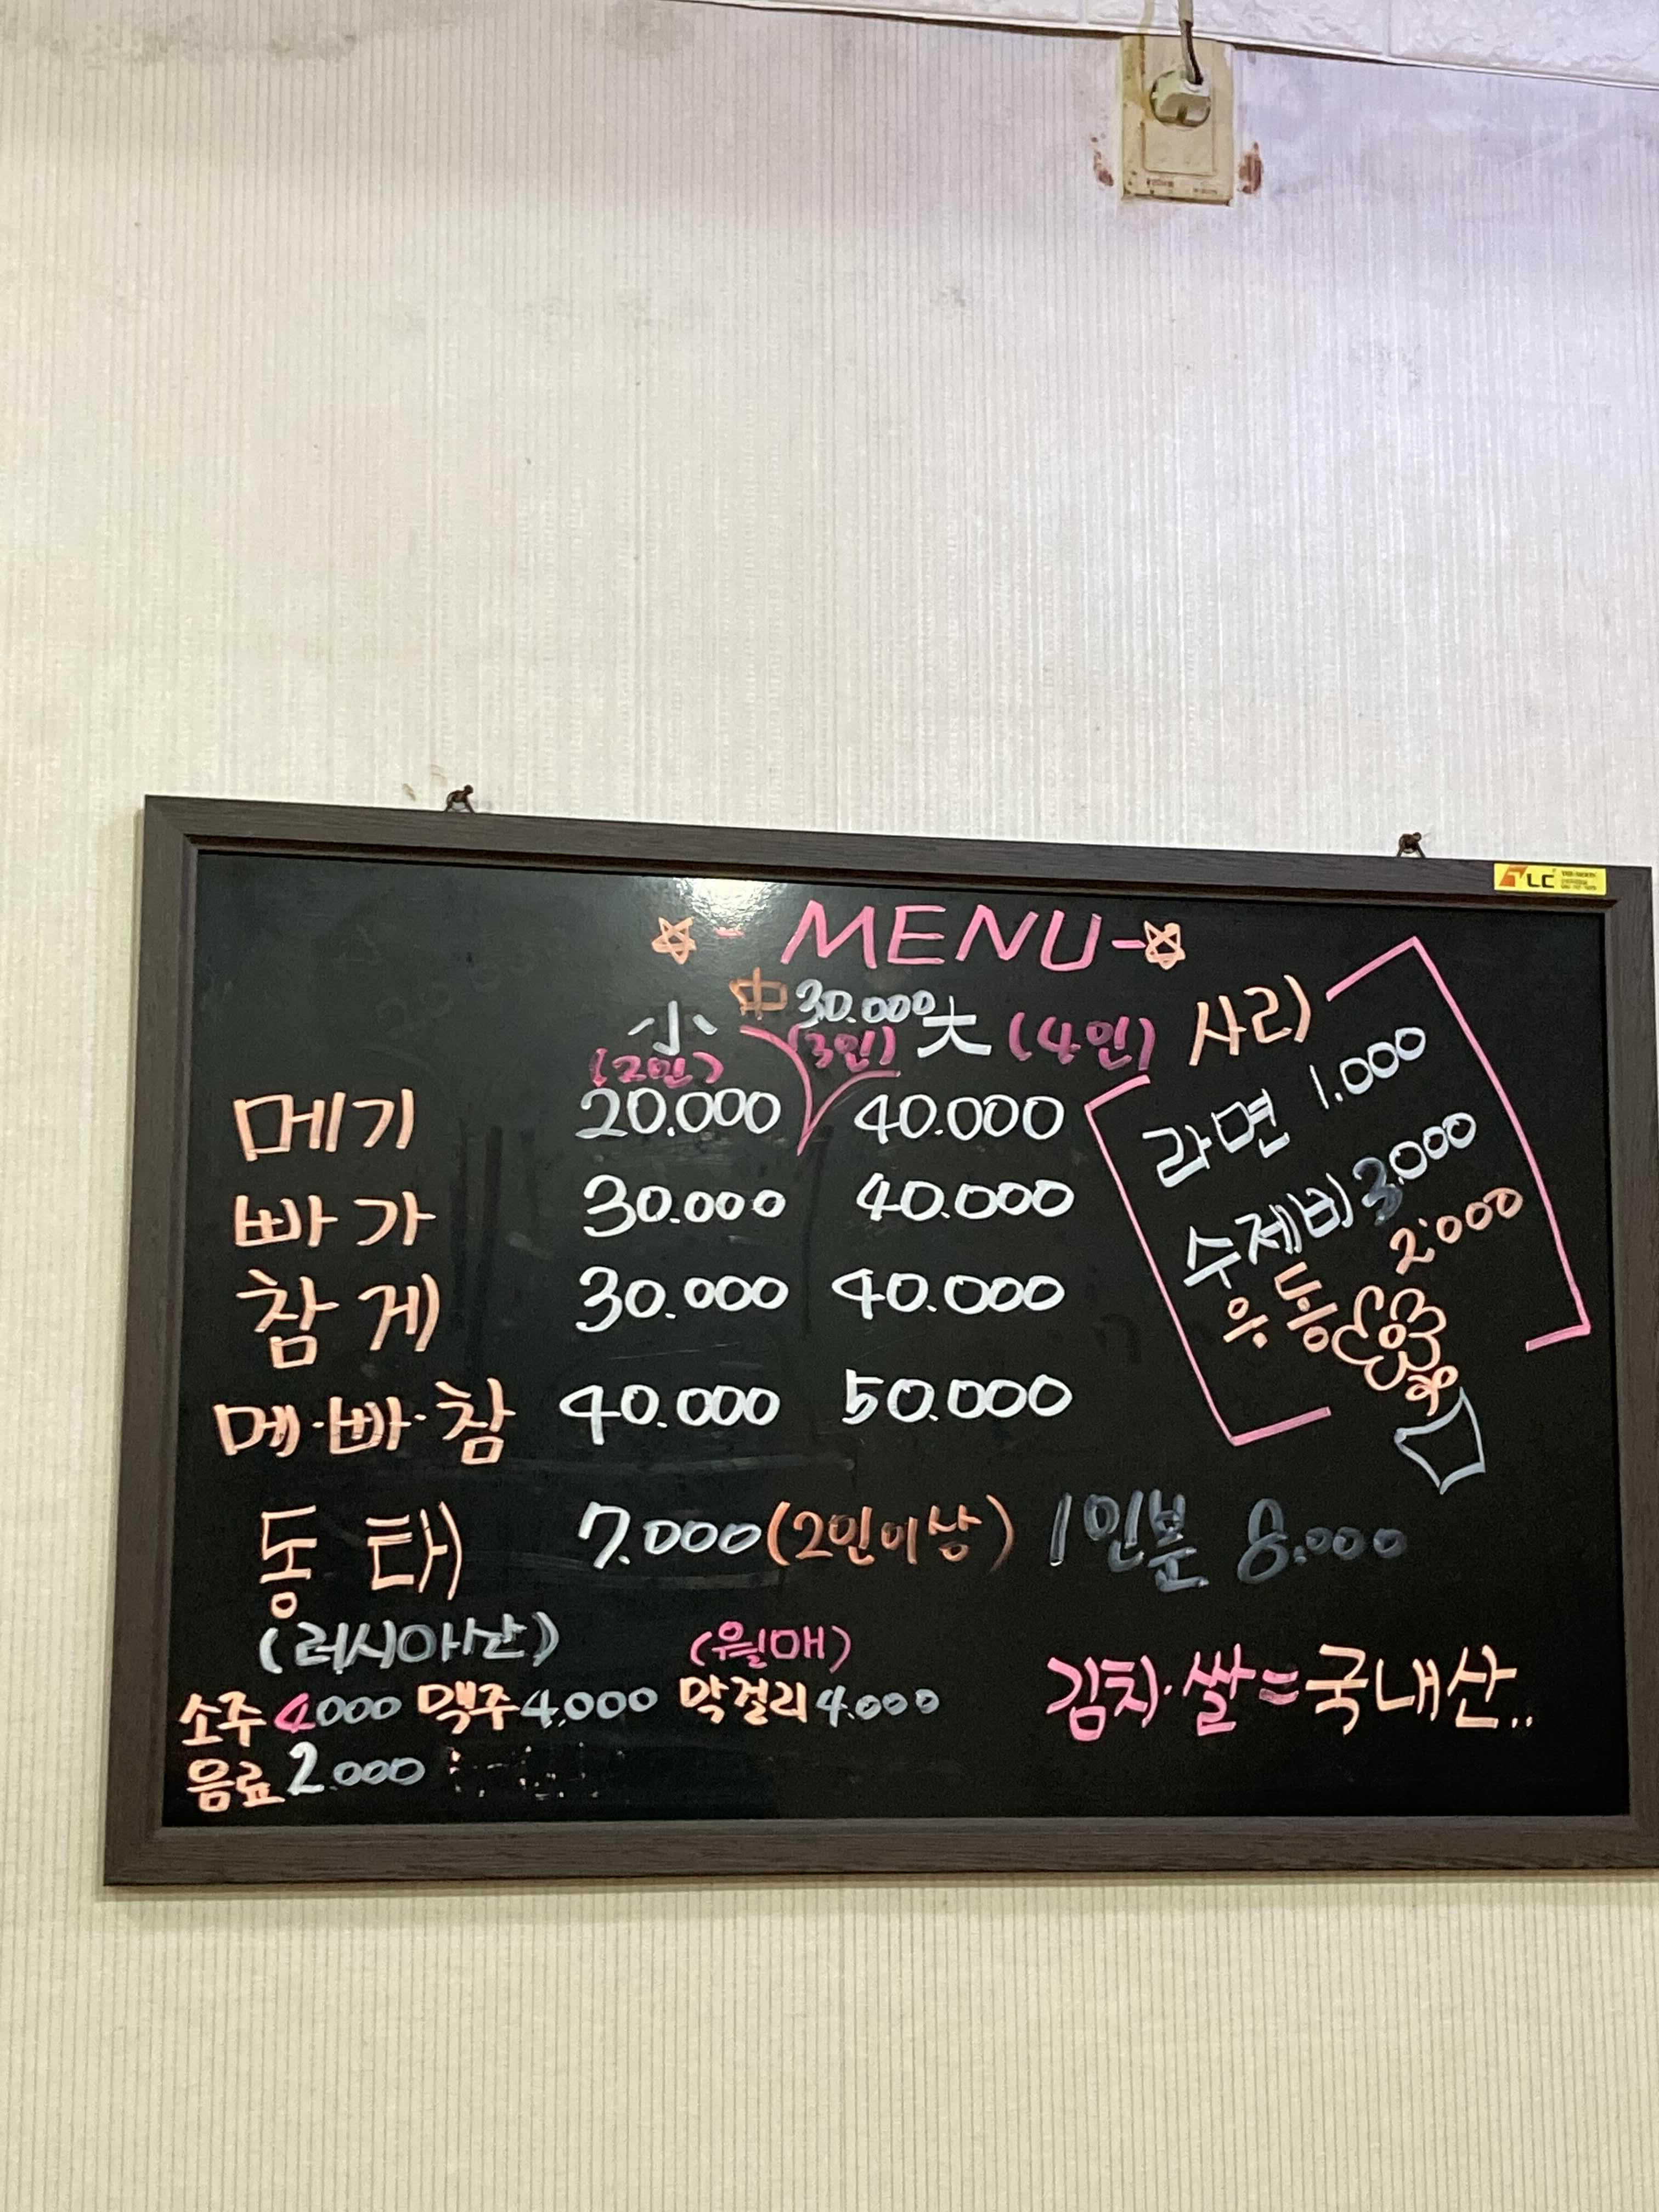 MENU
中 30.000
小 大 (4인)
(2인) (3인)
메기 20.000 40.000
빠가 30.000 40.000
참게 30.000 40.000
메·빠·참 40.000 50.000
동태 7.000 (2인이상) 1인분 8.000
(러시아산) (월매)
소주 4000 맥주 4,000 막걸리 4.000
음료 2.000
사리
라면 1.000
수제비 3.000
우동 2.000
김치·쌀=국내산..
TLC